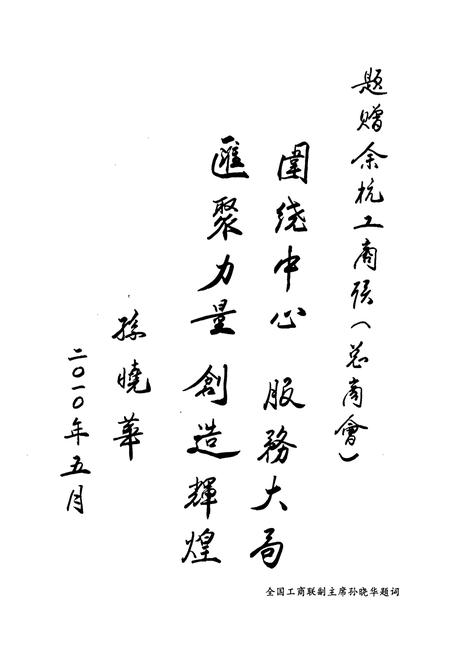 题赠余杭工商联(总商會)
圍绕中心 服務大局
匯聚力量 創造輝煌
孫曉華
二〇一〇年五月
全国工商联副主席孙晓华题词